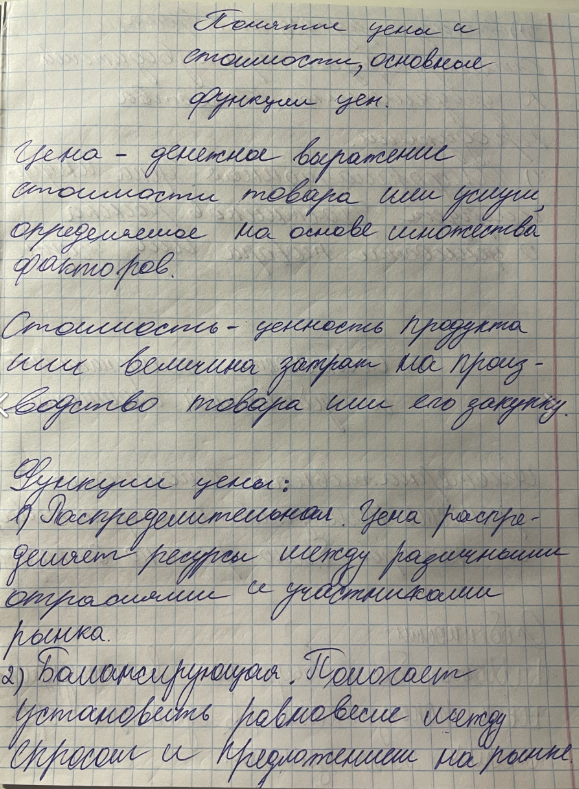 Понятие цены и
стоимости, основные
функции цен.
Цена - денежное выражение
стоимости товара или услуги,
определяемое на основе множества
факторов.
Стоимость - ценность продукта
или величина затрат на произ-
водство товара или его закупку.
Функции цены:
1) Распределительная. Цена распре-
деляет ресурсы между различными
отраслями и участниками
рынка.
2) Балансирующая. Помогает
установить равновесие между
спросом и предложением на рынке.